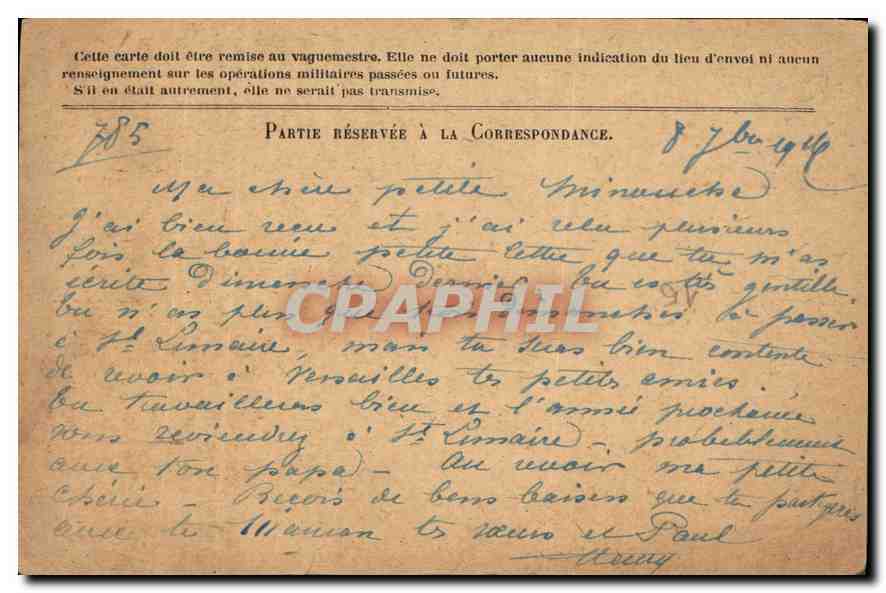 Cette carte doit être remise au vaguemestre. Elle ne doit porter aucune indication du lieu d'envoi ni aucun
renseignement sur les opérations militaires passées ou futures.
S'il en était autrement, elle ne serait pas transmise.
PARTIE RÉSERVÉE À LA CORRESPONDANCE.
785
8 7bre 1916
Ma chère petite Minouche
J'ai bien reçu et j'ai relu plusieurs
fois la bonne petite lettre que tu m'as
écrite Dimanche dernier. Tu es très gentille.
Tu n'as plus que Dimanches à passer
à St Lunaire, mais tu seras bien contente
de revoir à Versailles tes petites amies.
Tu travailleras bien et l'année prochaine
vous reviendrez à St Lunaire - probablement
avec ton papa - Au revoir ma petite
chérie - Reçois de bons baisers que tu partageras
avec ta Maman tes sœurs et Paul
Henry
CPARPHIL